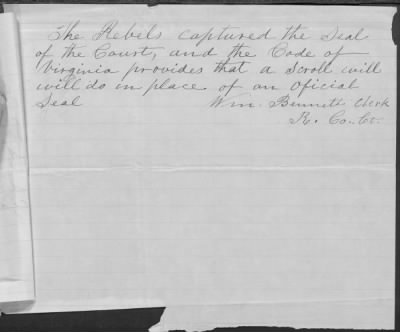 The Rebels captured the Seal
of the Court, and the Code of
Virginia provides that a Scroll will
will do in place of an Oficial
Seal Wm. Bennett Clerk
R. Co. Ct.